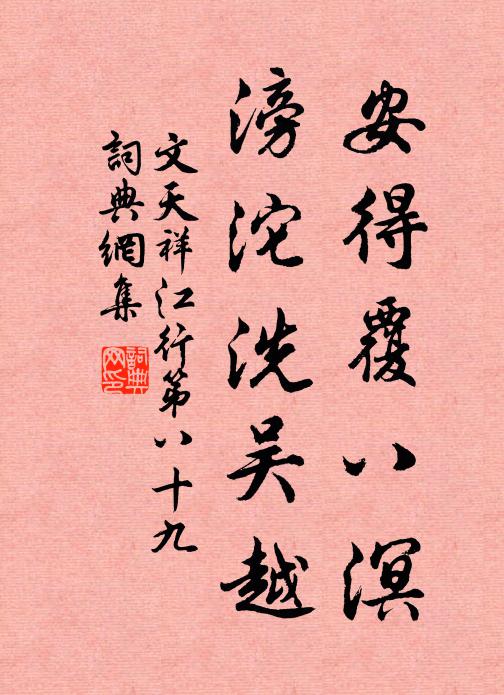 安得覆八溟
滂沱洗吴越
文天祥江行第八十九
詞典網集
詞典網印